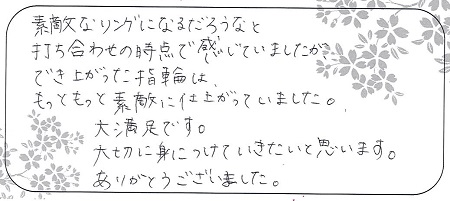 素敵なリングになるだろうなと
打ち合わせの時点で感じていましたが、
でき上がった指輪は、
もっともっと素敵に仕上がっていました。
大満足です。
大切に身につけていきたいと思います。
ありがとうございました。